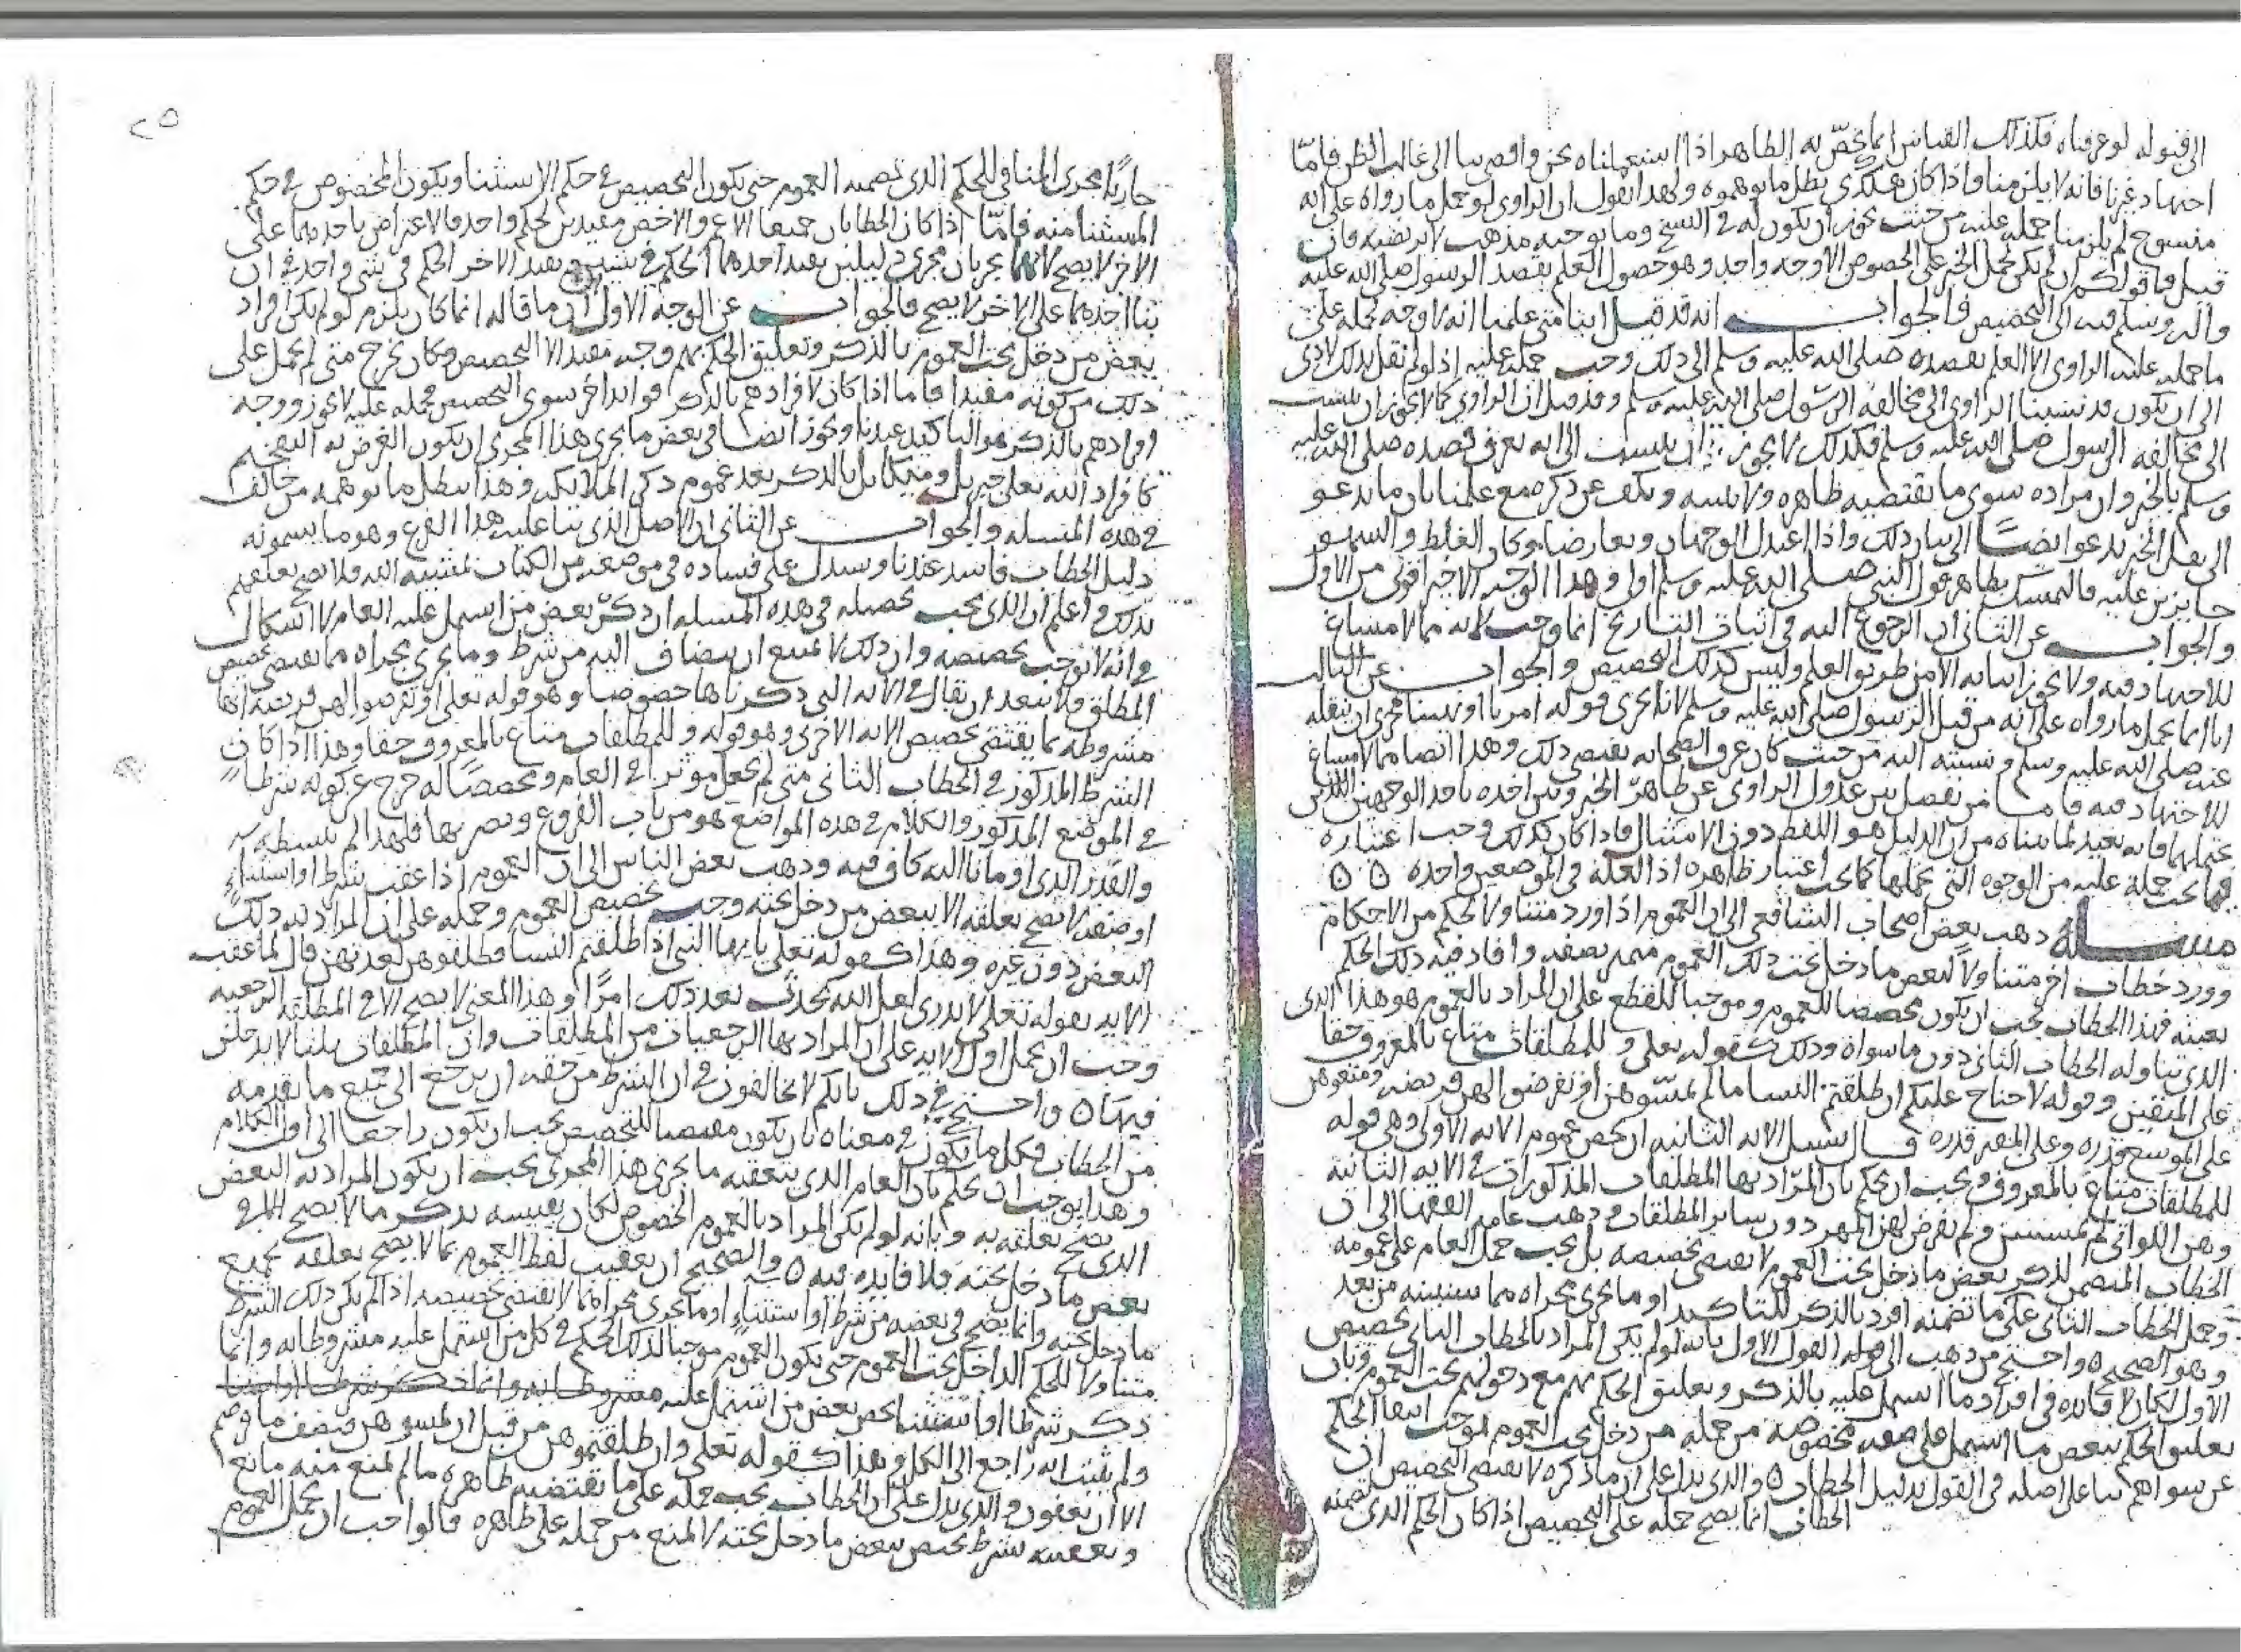 الى قبوله لو عرفناه فكذلك القياس انما يخص به الظاهر اذا استعملناه نحن وافضى بنا الى غالب الظن فاما
اجتهاد غيرنا فانه لا يلزمنا واذا كان هكذى بطل ما توهموه ولهذا نقول ان الراوى لو حمل ما رواه على انه
منسوخ لم يلزمنا حمله عليه من حيث يجوز ان يكون له فى النسخ وما يوجبه مذهب لا نرتضيه فان
قيل فما قولكم ان لم يكن لحمل الخبر على الخصوص الا وجه واحد وهو حصول العلم بقصد الرسول صلى الله عليه
واله وسلم فيه الى التخصيص فالجواب انه قد قيل اننا متى علمنا انه لا وجه لحمله على
ما حمله عليه الراوى الا العلم بقصده صلى الله عليه وسلم الى ذلك وجب حمله عليه اذ لو لم نقل بذلك لادى
الى ان يكون قد نسبنا الراوى الى مخالفة الرسول صلى الله عليه وسلم وقد قيل ان الراوى كما لا يجوز ان ينسب
الى مخالفة الرسول صلى الله عليه وسلم فكذلك لا يجوز ان ينسب الى انه يعرف قصده صلى الله عليه
وسلم بالخبر وان مراده سوى ما يقتضيه ظاهره ولا يبينه ويكف عن ذكره مع علمنا بان ما يدعو
الى نقل الخبر يدعو ايضا الى بيان ذلك واذا اعتدل الوجهان وتعارضا وكان الغلط والسهو
جايزين عليه فالتمسك بظاهر قول النبى صلى الله عليه وسلم اولى وهذا الوجه الاخير اقوى من الاول
والجواب عن الثانى ان الرجوع اليه فى اثبات التاريخ انما وجب لانه مما لا مساغ
للاجتهاد فيه ولا يجوز اثباته الا من طريق العلم وليس كذلك التخصيص والجواب عن الثالث
انا انما نحمل ما رواه على انه من قبل الرسول صلى الله عليه وسلم لانا نجرى قوله امرنا او نهينا مجرى ان ينقله
عنه صلى الله عليه وسلم ونسبته اليه من حيث كان عرف الصحابه يقتضى ذلك وهذا ايضا مما لا مساغ
للاجتهاد فيه فاما من يفصل بين عدول الراوى عن ظاهر الخبر وبين اخذه باحد الوجهين اللذين
يحتملهما فانه بعيد لما بيناه من ان الدليل هو اللفظ دون الامتثال فاذا كان كذلك وجب اعتباره
فيما يجب حمله عليه من الوجوه التى يحتملها كما يجب اعتبار ظاهره اذ العلة فى الموضعين واحده
مسئله ذهب بعض اصحاب الشافعى الى ان العموم اذا ورد متناولا لحكم من الاحكام
وورد خطاب اخر متناولا لبعض ما دخل تحت ذلك العموم بصفه وافاد فيه ذلك الحكم
بعينه فهذا الخطاب يجب ان يكون مخصصا للعموم وموجبا للقطع على ان المراد بالعموم هو هذا الذى
الذى تناوله الخطاب الثانى دون ما سواه وذلك كقوله تعلى وللمطلقات متاع بالمعروف حقا
على المتقين وقوله لا جناح عليكم ان طلقتم النسا ما لم تمسوهن او تفرضوا لهن فريضه ومتعوهن
على الموسع قدره وعلى المقتر قدره قال فسبيل الايه الثانيه ان تخص عموم الايه الاولى وهى قوله
للمطلقات متاع بالمعروف ويجب ان يحكم بان المراد بها المطلقات المذكورات فى الايه الثانية
وهن اللواتى لم يمسسن ولم يفرض لهن المهر دون ساير المطلقات وذهب عامة الفقها الى ان
الخطاب المتضمن لذكر بعض ما دخل تحت العموم لا يقتضى تخصيصه بل يجب حمل العام على عمومه
وحمل الخطاب الثانى على ما تضمنه افرد بالذكر للتاكيد او ما يجرى مجراه مما سنبينه من بعد
وهو الصحيح واحتج من ذهب الى القول الاول بانه لو لم يكن المراد بالخطاب الثانى تخصيص
الاول لكان لا فايده فى افراد ما اشتمل عليه بالذكر وتعليق الحكم بهم مع دخولهم تحت العموم وبان
تعليق الحكم ببعض ما اشتمل على صفه مخصوصه من جملة من دخل تحت العموم يوجب انتفا الحكم
عن سواهم بنا على اصله فى القول بدليل الخطاب والذى يدل على ان ما ذكره لا يقتضى التخصيص ان
الخطاب انما يصح حمله على التخصيص اذا كان الحكم الذى تضمنه
٢٥
جاريا مجرى المنافى للحكم الذى تضمنه العموم حتى يكون التخصيص فى حكم الاستثنا ويكون المخصوص فى حكم
المستثنا منه فاما اذا كان الخطابان جميعا الاعم والاخص مفيدين لحكم واحد فالاعتراض باحدهما على
الاخر لا يصح لانهما يجريان مجرى دليلين يفيد احدهما الحكم فى شيئين ويفيد الاخر الحكم فى شى واحد فى ان
بنا احدهما على الاخر لا يصح فالجواب عن الوجه الاول ان ما قاله انما كان يلزم لو لم يكن افراد
بعض من دخل تحت العموم بالذكر وتعليق الحكم بهم وجه مفيد الا التخصيص وكان يخرج متى لم يحمل على
ذلك من كونه مفيدا فاما اذا كان لافرادهم بالذكر فوايد اخر سوى التخصيص فحمله عليه لا يجوز ووجه
افرادهم بالذكر هو التاكيد عندنا ويجوز ايضا فى بعض ما يجرى هذا المجرى ان يكون الغرض به التفخيم
كافراد الله تعلى جبريل وميكايل بالذكر بعد عموم ذكر الملايكه وهذا يبطل ما توهمه من خالف
فى هذه المسئله والجواب عن الثانى ان الاصل الذى بنا عليه هذا الفرع وهو ما يسمونه
دليل الخطاب فاسد عندنا وسندل على فساده فى موضعه من الكتاب بمشيه الله فلا يصح تعلقهم
بذلك واعلم ان الذى يجب تحصيله فى هذه المسئله ان ذكر بعض من اشتمل عليه العام لا اشكال
فى انه لا يوجب تخصيصه وان ذلك لا يمنع ان ينضاف اليه من شرط وما يجرى مجراه مما يقتضى تخصيص
المطلق فلا يبعد ان يقال فى الايه التى ذكرناها خصوصا وهو قوله تعلى او تفرضوا لهن فريضه انها
مشروطه بما يقتضى تخصيص الايه الاخرى وهو قوله وللمطلقات متاع بالمعروف حقا وهذا اذا كان
الشرط المذكور فى الخطاب الثانى متى لم يجعل موثرا فى العام ومخصصا له خرج عن كونه شرطا
فى الموضع المذكور والكلام فى هذه المواضع هو من باب الفروع ونصرتها فلهذا لم نبسطه
والقدر الذى اومانا اليه كاف فيه وذهب بعض الناس الى ان العموم اذا عقب بشرط او استثناء
او صفه لا يصح تعلقه الا ببعض من دخل تحته وجب تخصيص العموم وحمله على ان المراد به ذلك
البعض دون غيره وهذا كقوله تعلى يايها النبى اذا طلقتم النسا فطلقوهن لعدتهن قال لما عقب
الايه بقوله تعلى لا تدرى لعل الله يحدث بعد ذلك امرا وهذا المعنى لا يصح الا فى المطلقه الرجعيه
وجب ان يحمل اول الايه على ان المراد بها الرجعيات من المطلقات وان المطلقات ثلثا لا يدخلن
فيها واحتج فى ذلك بانكم لا تخالفون فى ان الشرط من حقه ان يرجع الى جميع ما تقدمه
من الخطاب فكل ما يكون فى معناه بان يكون مقتضيا للتخصيص يجب ان يكون راجعا الى اول الكلام
وهذا يوجب ان نحكم بان العام الذى يتعقبه ما يجرى هذا المجرى يجب ان يكون المراد به البعض
الذى يصح تعلقه به وبانه لو لم يكن المراد بالعموم الخصوص لكان تعقيبه بذكر ما لا يصح الا فى
بعض ما دخل تحته فلا فايده فيه والصحيح ان تعقيب لفظ العموم بما لا يصح تعلقه بجميع
ما دخل تحته وانما يصح فى بعضه من شرط او استثناء او ما يجرى مجراه مما لا يقتضى تخصيصه اذا لم يكن ذلك الشرط
متناولا للحكم الداخل تحت العموم حتى يكون العموم موجبا لذلك الحكم فى كل من اشتمل عليه مشروطا به وانما
ذكر شرطا او استثناء يخص بعض من اشتمل عليه
ولم يثبت انه راجع الى الكل وهذا كقوله تعلى وان طلقتموهن من قبل ان تمسوهن فنصف ما فرضتم
الا ان يعفون والذى يدل على ان الخطاب يجب حمله على ما يقتضيه ظاهره ما لم يمنع منه مانع
وتعقيبه بشرط يختص ببعض ما دخل تحته لا يمنع من حمله على ظاهره فالواجب ان يحمل العموم